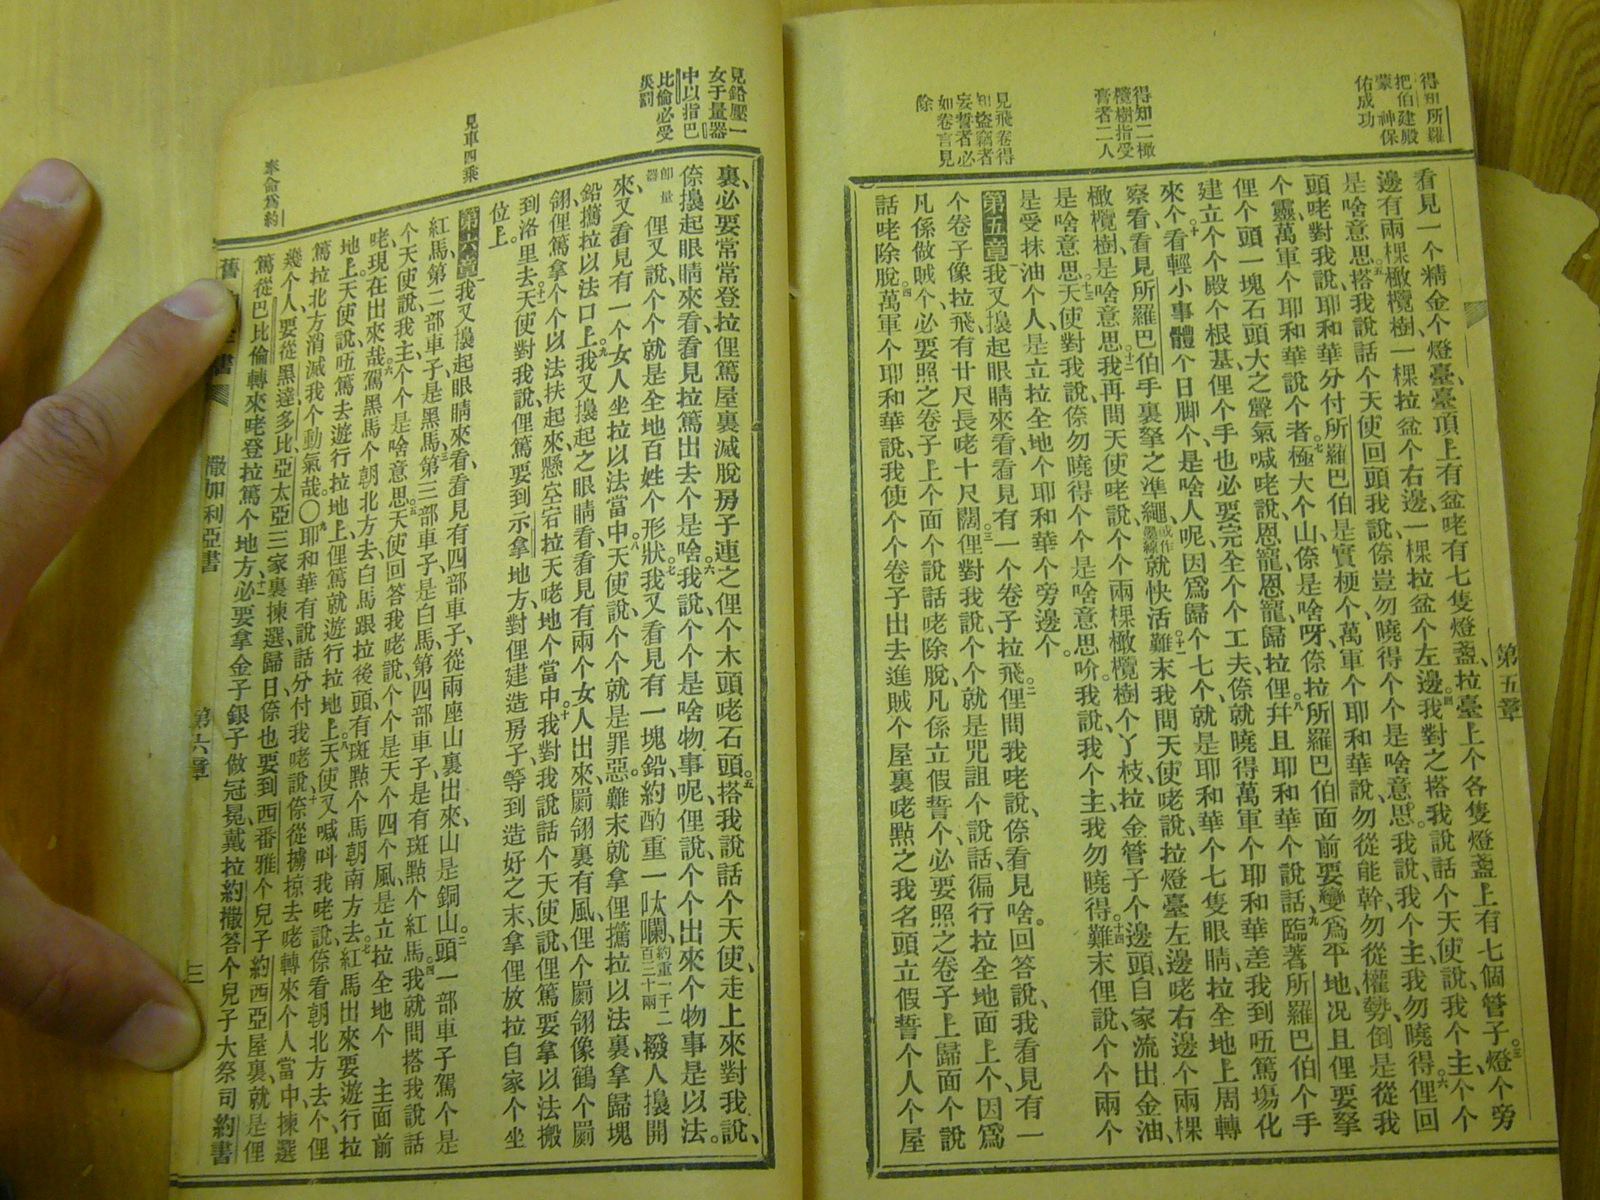 得知所羅
把伯建殿
蒙 神保
佑成功
得知二橄
欖樹指受
膏者二人
見飛卷得
知盜竊者
妄誓者必
如卷言見
除
第五章
看見一个精金个燈臺、臺頂上有盆咾有七隻燈盞、拉臺上个各隻燈盞上有七個管子、燈个旁
邊有兩棵橄欖樹、一棵拉盆个右邊、一棵拉盆个左邊。我對之搭我說話个天使說、我个主、个个
是啥意思、搭我說話个天使回頭我說、倷豈勿曉得个个是啥意思。我說、我个主我勿曉得。俚回
頭咾對我說、耶和華分付所羅巴伯、是實梗个、萬軍个耶和華說、勿從能幹、勿從權勢、倒是從我
个靈、萬軍个耶和華說个者。極大个山、倷是啥呀、倷拉所羅巴伯面前要變爲平地、况且俚要拏
俚个頭一塊石頭、大之聲氣喊咾說、恩寵、恩寵、歸拉俚。幷且耶和華个說話、臨著所羅巴伯个手
建立个个殿个根基、俚个手也必要完全个个工夫、倷就曉得萬軍个耶和華差我到唔篤塲化
來个。看輕小事體个日脚个、是啥人呢、因爲歸个七个、就是耶和華个七隻眼睛、拉全地上周轉
察看、看見所羅巴伯手裏拏之準繩、或作墨線就快活。難末我問天使咾說、拉燈臺左邊咾右邊个兩棵
橄欖樹、是啥意思。我再問天使咾說、个个兩棵橄欖樹个丫枝、拉金管子个邊頭、自家流出金油、
是啥意思。天使對我說、倷勿曉得个个是啥意思吤、我說、我个主、我勿曉得。難末俚說、个个兩个
是受抹油个人、是立拉全地个耶和華个旁邊个。
第五章 我又擡起眼睛來看、看見有一个卷子拉飛。俚問我咾說、倷看見啥。回答說、我看見有一
个卷子像拉飛、有廿尺長咾十尺闊。俚對我說、个个就是咒詛个說話、徧行拉全地面上个、因爲
凡係做賊个、必要照之卷子上个面个說話咾除脫、凡係立假誓个、必要照之卷子上歸面个說
話咾除脫。萬軍个耶和華說、我使个个卷子出去、進賊个屋裏、咾點之我名頭立假誓个人个屋
見鉛壓一
女于量器
中以指巴
比倫必受
災罰
見車四乘
奉命爲約
裏、必要常常登拉俚篤屋裏、滅脫房子、連之俚个木頭咾石頭。搭我說話个天使、走上來對我說、
倷擡起眼睛來看、看見拉篤出去个是啥。我說、个个是啥物事呢、俚說、个个出來个物事是以法。
卽量器 俚又說、个个就是全地百姓个形狀。我又看見有一塊鉛、約酌重一㐲爛、約重一千二百二十兩 撥人擡開
來、又看見有一个女人坐拉以法當中。天使說、个个就是罪惡。難末就拿俚攜拉以法裏、拿歸塊
鉛攜拉以法口上。我又擡起之眼睛看、看見有兩个女人出來、罽翎裏有風、俚个罽翎像鶴个罽
翎、俚篤拿个个以法扶起來、懸空宕拉天咾地个當中。我對我說話个天使說、俚篤要拿以法搬
到洛里去。天使對我說、俚篤要到示拿地方、對俚建造房子、等到造好之末、拿俚放拉自家个坐
位上。
第六章 我又擡起眼睛來看、看見有四部車子、從兩座山裏出來、山是銅山。頭一部車子駕个是
紅馬、第二部車子是黑馬、第三部車子是白馬、第四部車子、是有斑點个紅馬。我就問搭我說話
个天使說、我主、个个是啥意思。天使回答我咾說、个个是天个四个風、是立拉全地个 主面前
咾、現在出來哉。駕黑馬个朝北方去、白馬跟拉後頭、有斑點个馬朝南方去。紅馬出來要遊行拉
地上。天使說、唔篤去遊行拉地上、俚篤就遊行拉地上。天使又喊叫我咾說、倷看朝北方去个、俚
篤拉北方消滅我个動氣哉〇耶和華有說話分付我咾說、倷從擄掠去咾轉來个人當中、揀選
幾个人、要從黑達多比亞太亞三家裏揀選、歸日倷也要到西番雅个兒子約西亞屋裏、就是俚
篤從巴比倫轉來咾登拉篤个地方、必要拿金子銀子做冠冕、戴拉約撒答个兒子大祭司約書
撒加利亞書
第六章
三